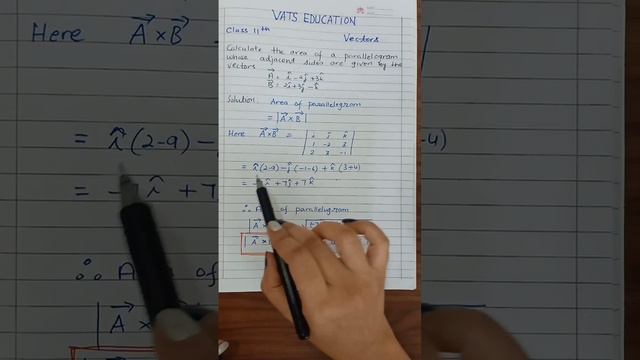 VATS EDUCATION
Class 11th Vectors
Calculate the area of a parallelogram
whose adjacent sides are given by the
vectors A⃗ = î - 2ĵ + 3k̂
B⃗ = 2î + 3ĵ - k̂
Solution: Area of parallelogram
= |A⃗ × B⃗|
Here A⃗ × B⃗ = | î ĵ k̂ |
| 1 -2 3 |
| 2 3 -1 |
= î (2-9) - ĵ (-1-6) + k̂ (3+4)
= î + 7ĵ + 7k̂
∴ A of parallelogram
|A⃗ ×
|A⃗ ×